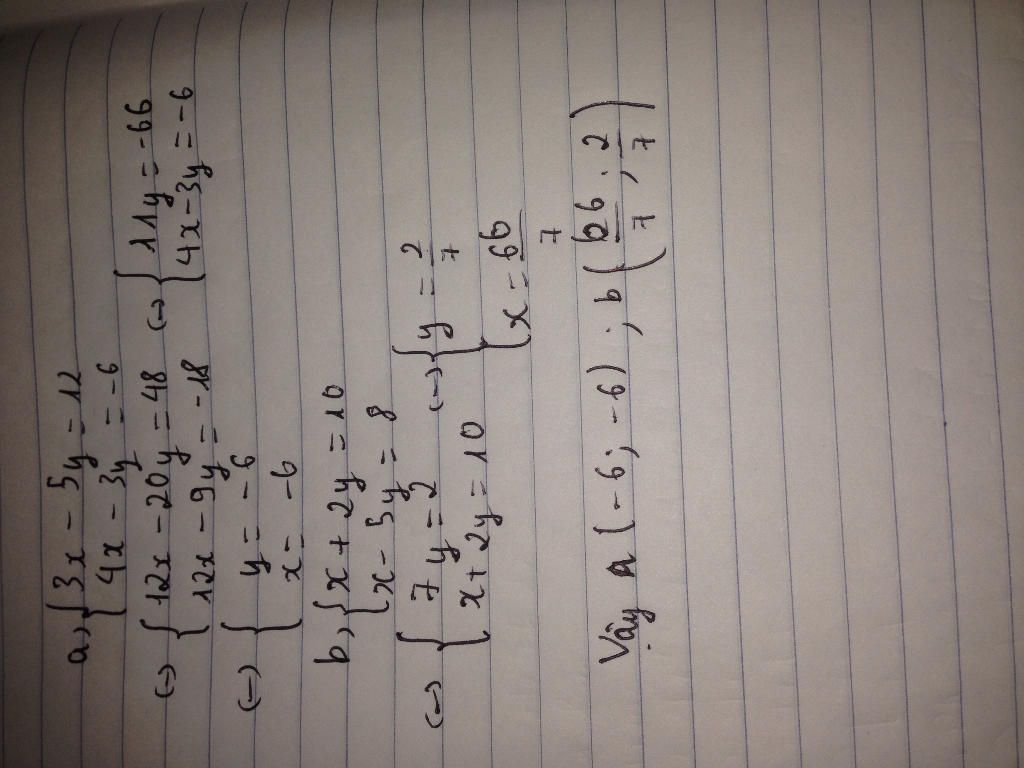 a) { 3x - 5y = 12
4x - 3y = -6
<-> { 12x - 20y = 48 <-> { 11y = -66
12x - 9y = -18 4x - 3y = -6
<-> { y = -6
x = -6
b) { x + 2y = 10
x - 5y = 8
<-> { 7y = 2 <-> { y = 2/7
x + 2y = 10 { x = 66/7
Vậy a (-6; -6) ; b (66/7; 2/7)